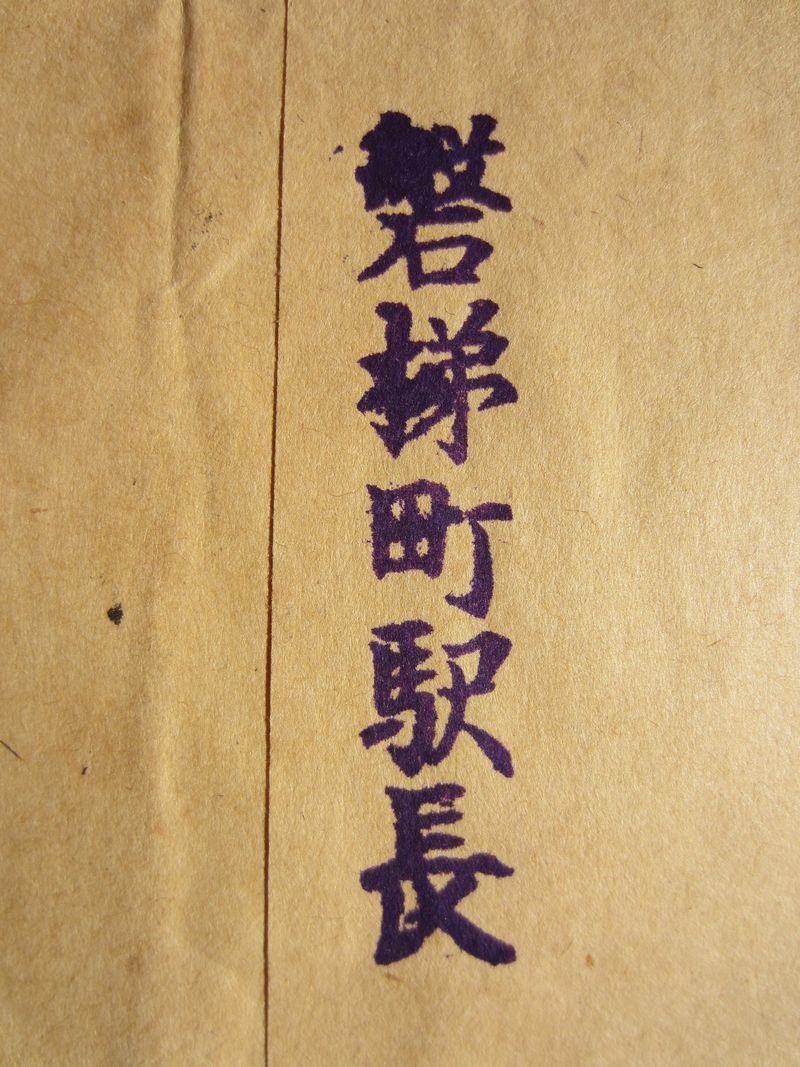 磐梯町駅長